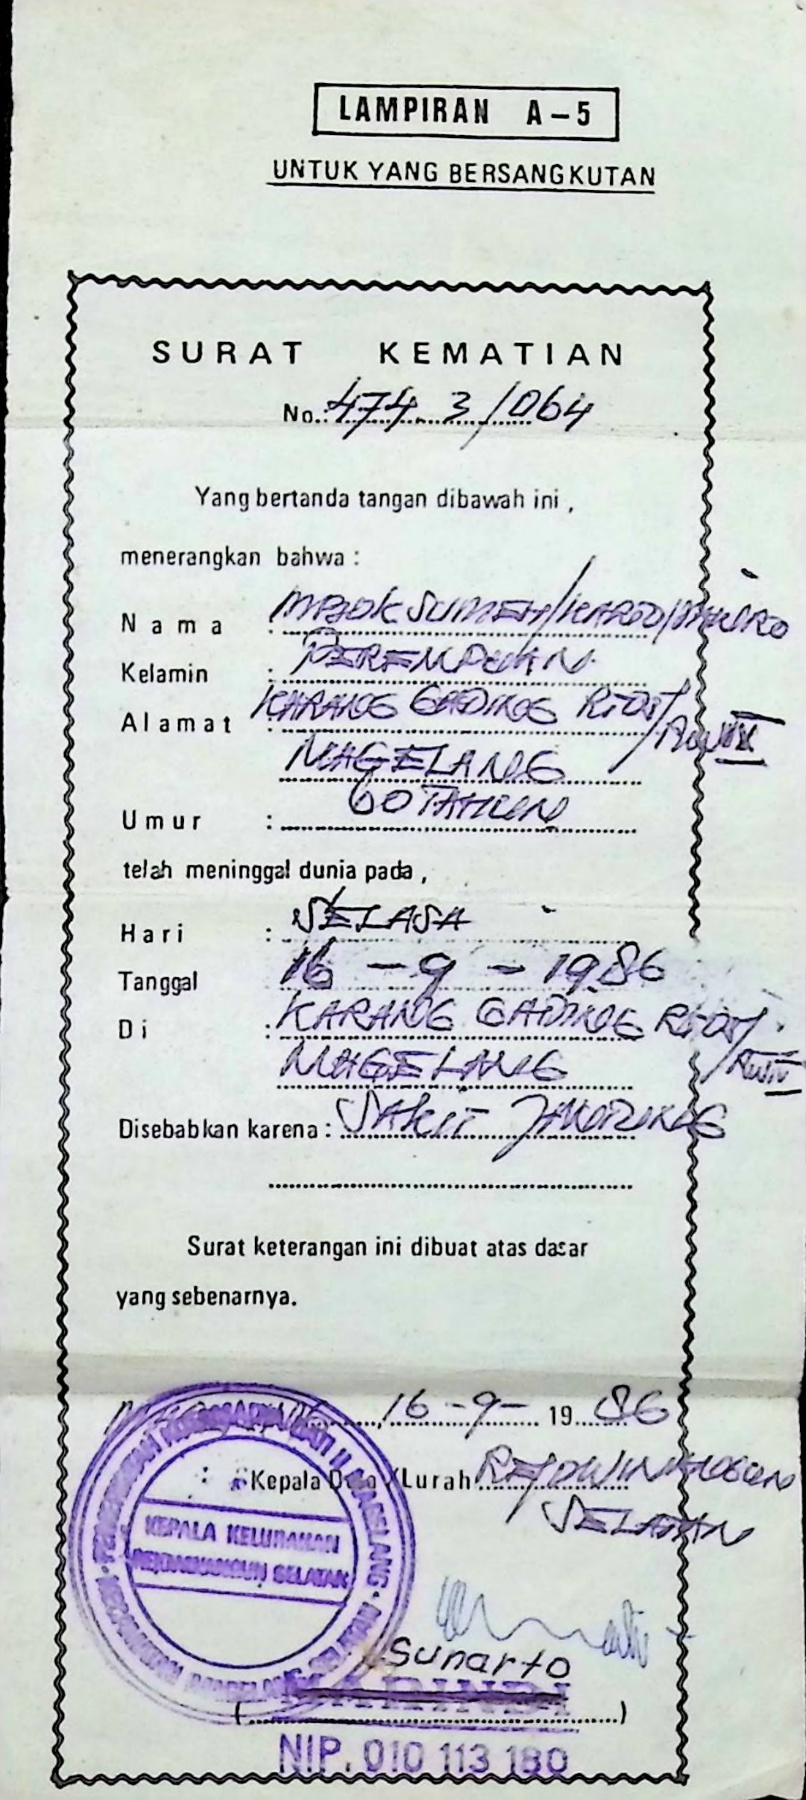 LAMPIRAN A-5
UNTUK YANG BERSANGKUTAN
SURAT KEMATIAN
No.: 474.3/064
Yang bertanda tangan dibawah ini,
menerangkan bahwa :
Nama : MBOK SUMEH/KARSO/
Kelamin : PEREMPUAN
Alamat : KARANG GADING
MAGELANG
Umur : 60 TAHUN
telah meninggal dunia pada,
Hari : SELASA
Tanggal : 16-9-1986
Di : KARANG GADING
MAGELANG
Disebabkan karena : SAKIT JANTUNG
Surat keterangan ini dibuat atas dasar
yang sebenarnya.
16-9-1986
Kepala Desa/Lurah REJOWINANGUN
SELATAN
KEPALA KELURAHAN
REJOWINANGUN SELATAN
Sunarto
(....................)
NIP. 010 113 180